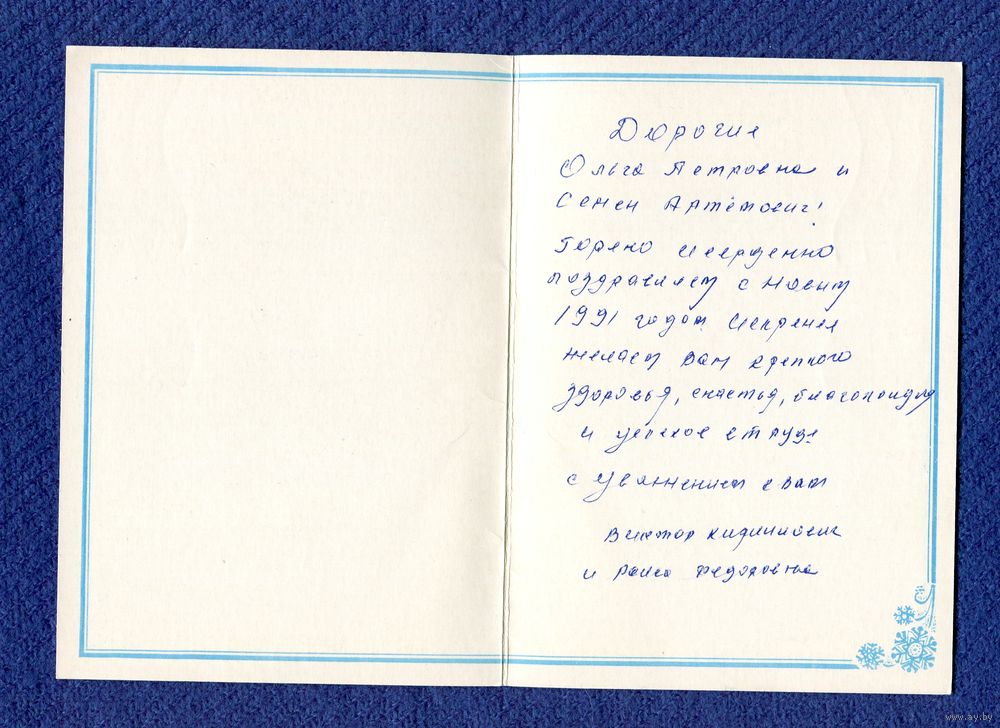 Дорогие
Ольга Петровна и
Семен Артёмович!
Горячо и сердечно
поздравляем с новым
1991 годом. Искренне
желаем Вам крепкого
здоровья, счастья, благополучия
и успехов в труде
с уважением к Вам
Виктор
и Раиса Федоровна
www.ay.by